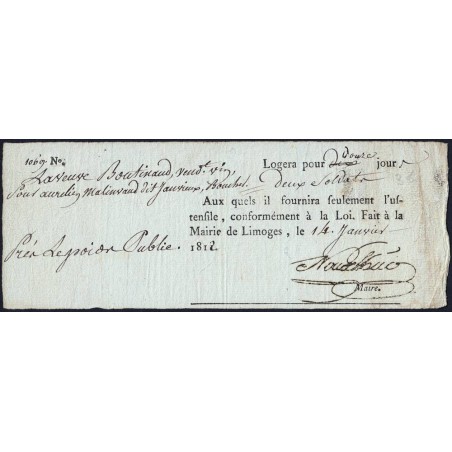 1069. No.
Logera pour douze jours
La veuve Boutinaud, vend.t vin,
pour aurelien Malinvaud dit Janvieux, Boucher. deux Soldats
Aux quels il fournira seulement l'us-
tensile, conformément à la Loi. Fait à la
Mairie de Limoges, le 14 Janvier
Près Le poids Public. 1812.
Maire.